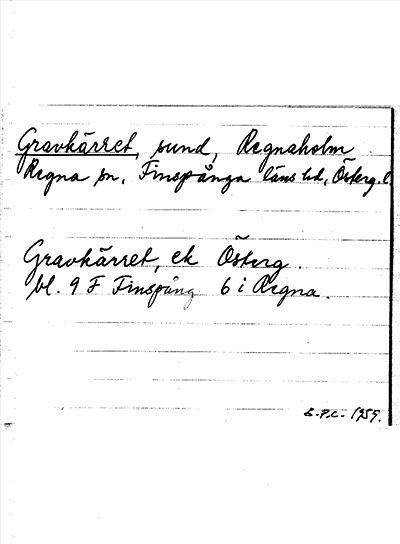 Gravkärret, sund, Regnaholm
Regna sn, Finspånga läns hd, Österg. l.
Gravkärret, ek Österg.
bl. 9 F Finspång 6 i Regna.
E.P.C. 1959.